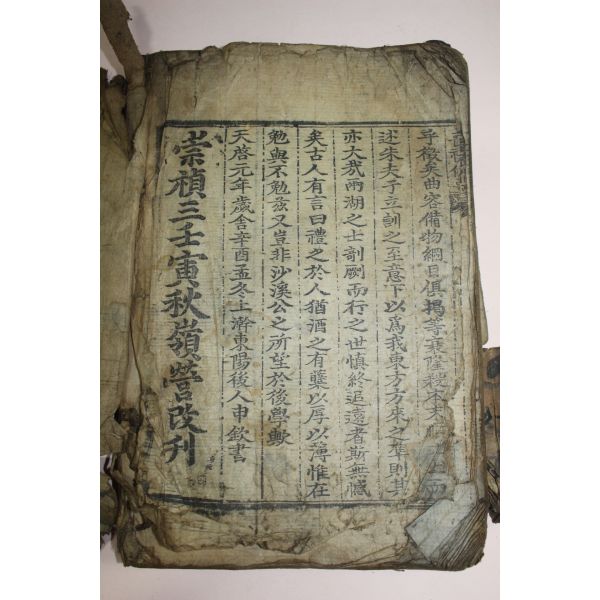 乎徵矣曲容備物綱目俱揭等衰隆殺本末
述朱夫子立訓之至意下以爲我東方方來之準則其
亦大哉兩湖之士剞劂而行之世愼終追遠者斯無憾
矣古人有言曰禮之於人猶酒之有蘗以厚以薄惟在
勉與不勉玆又豈非沙溪公之所望於後學歟
天啓元年歲舍辛酉孟冬上澣東陽後人申欽書
崇禎三壬寅秋嶺營改刋